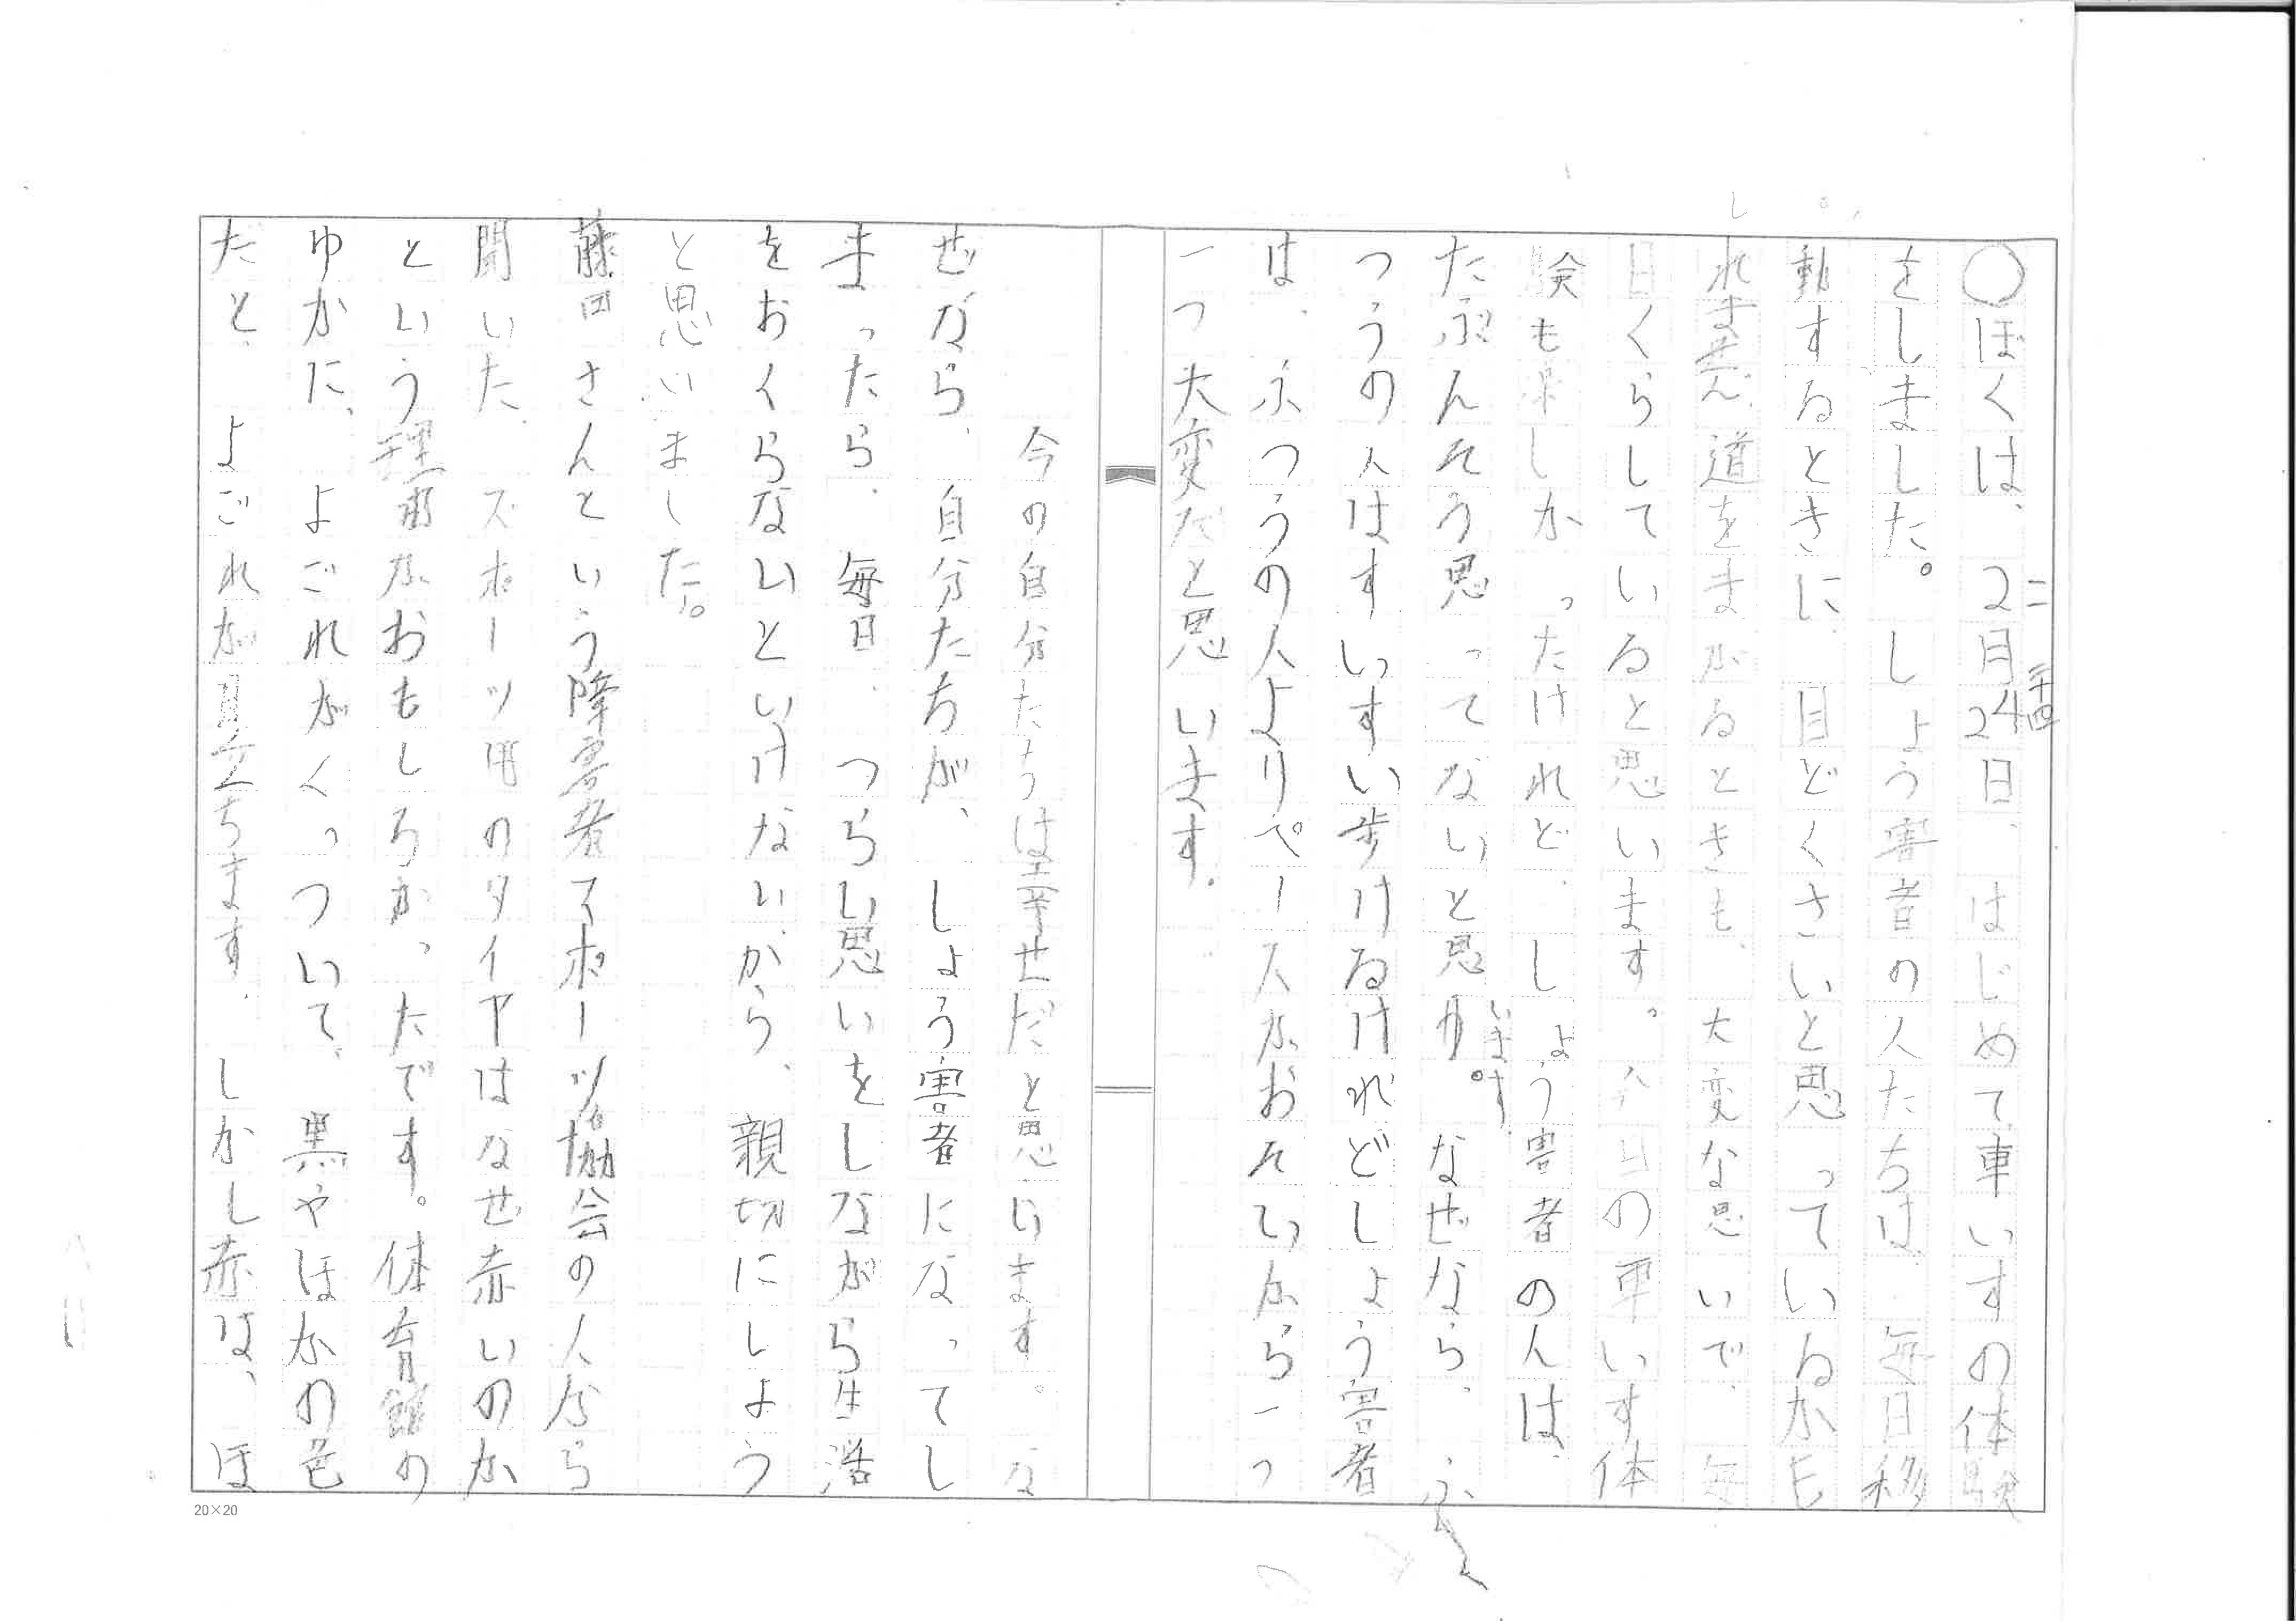 ○ぼくは、2二月24二十四日、はじめて車いすの体験
をしました。しょう害者の人たちは、毎日移
動するときに、目どくさいと思っているかも
しれません。道をまがるときも、大変な思いで、毎
日くらしていると思います。今日の車いす体
験も楽しかったけれど、しょう害者のんは、
たぶんそう思ってないと思います。なぜなら、ふ
つうの人はすいすい歩けるけれどしょう害者
は、ふつうの人よりペースがおそいから一つ
一つ大変だと思います。
今の自分たちは幸せだと思います。な
ぜなら、自分たちが、しょう害者になってし
まったら、毎日、つらい思いをしながら生活
をおくらないといけないから、親切にしよう
と思いました。
藤田さんという障害者スポーツ協会の人から
聞いた、スポーツ用のタイヤはなぜ赤いのか
という理由がおもしろかったです。体育館の
ゆかに、よごれがくっついて、黒やほかの色
だと、よごれが目立ちます。しかし赤は、ほ
20×20